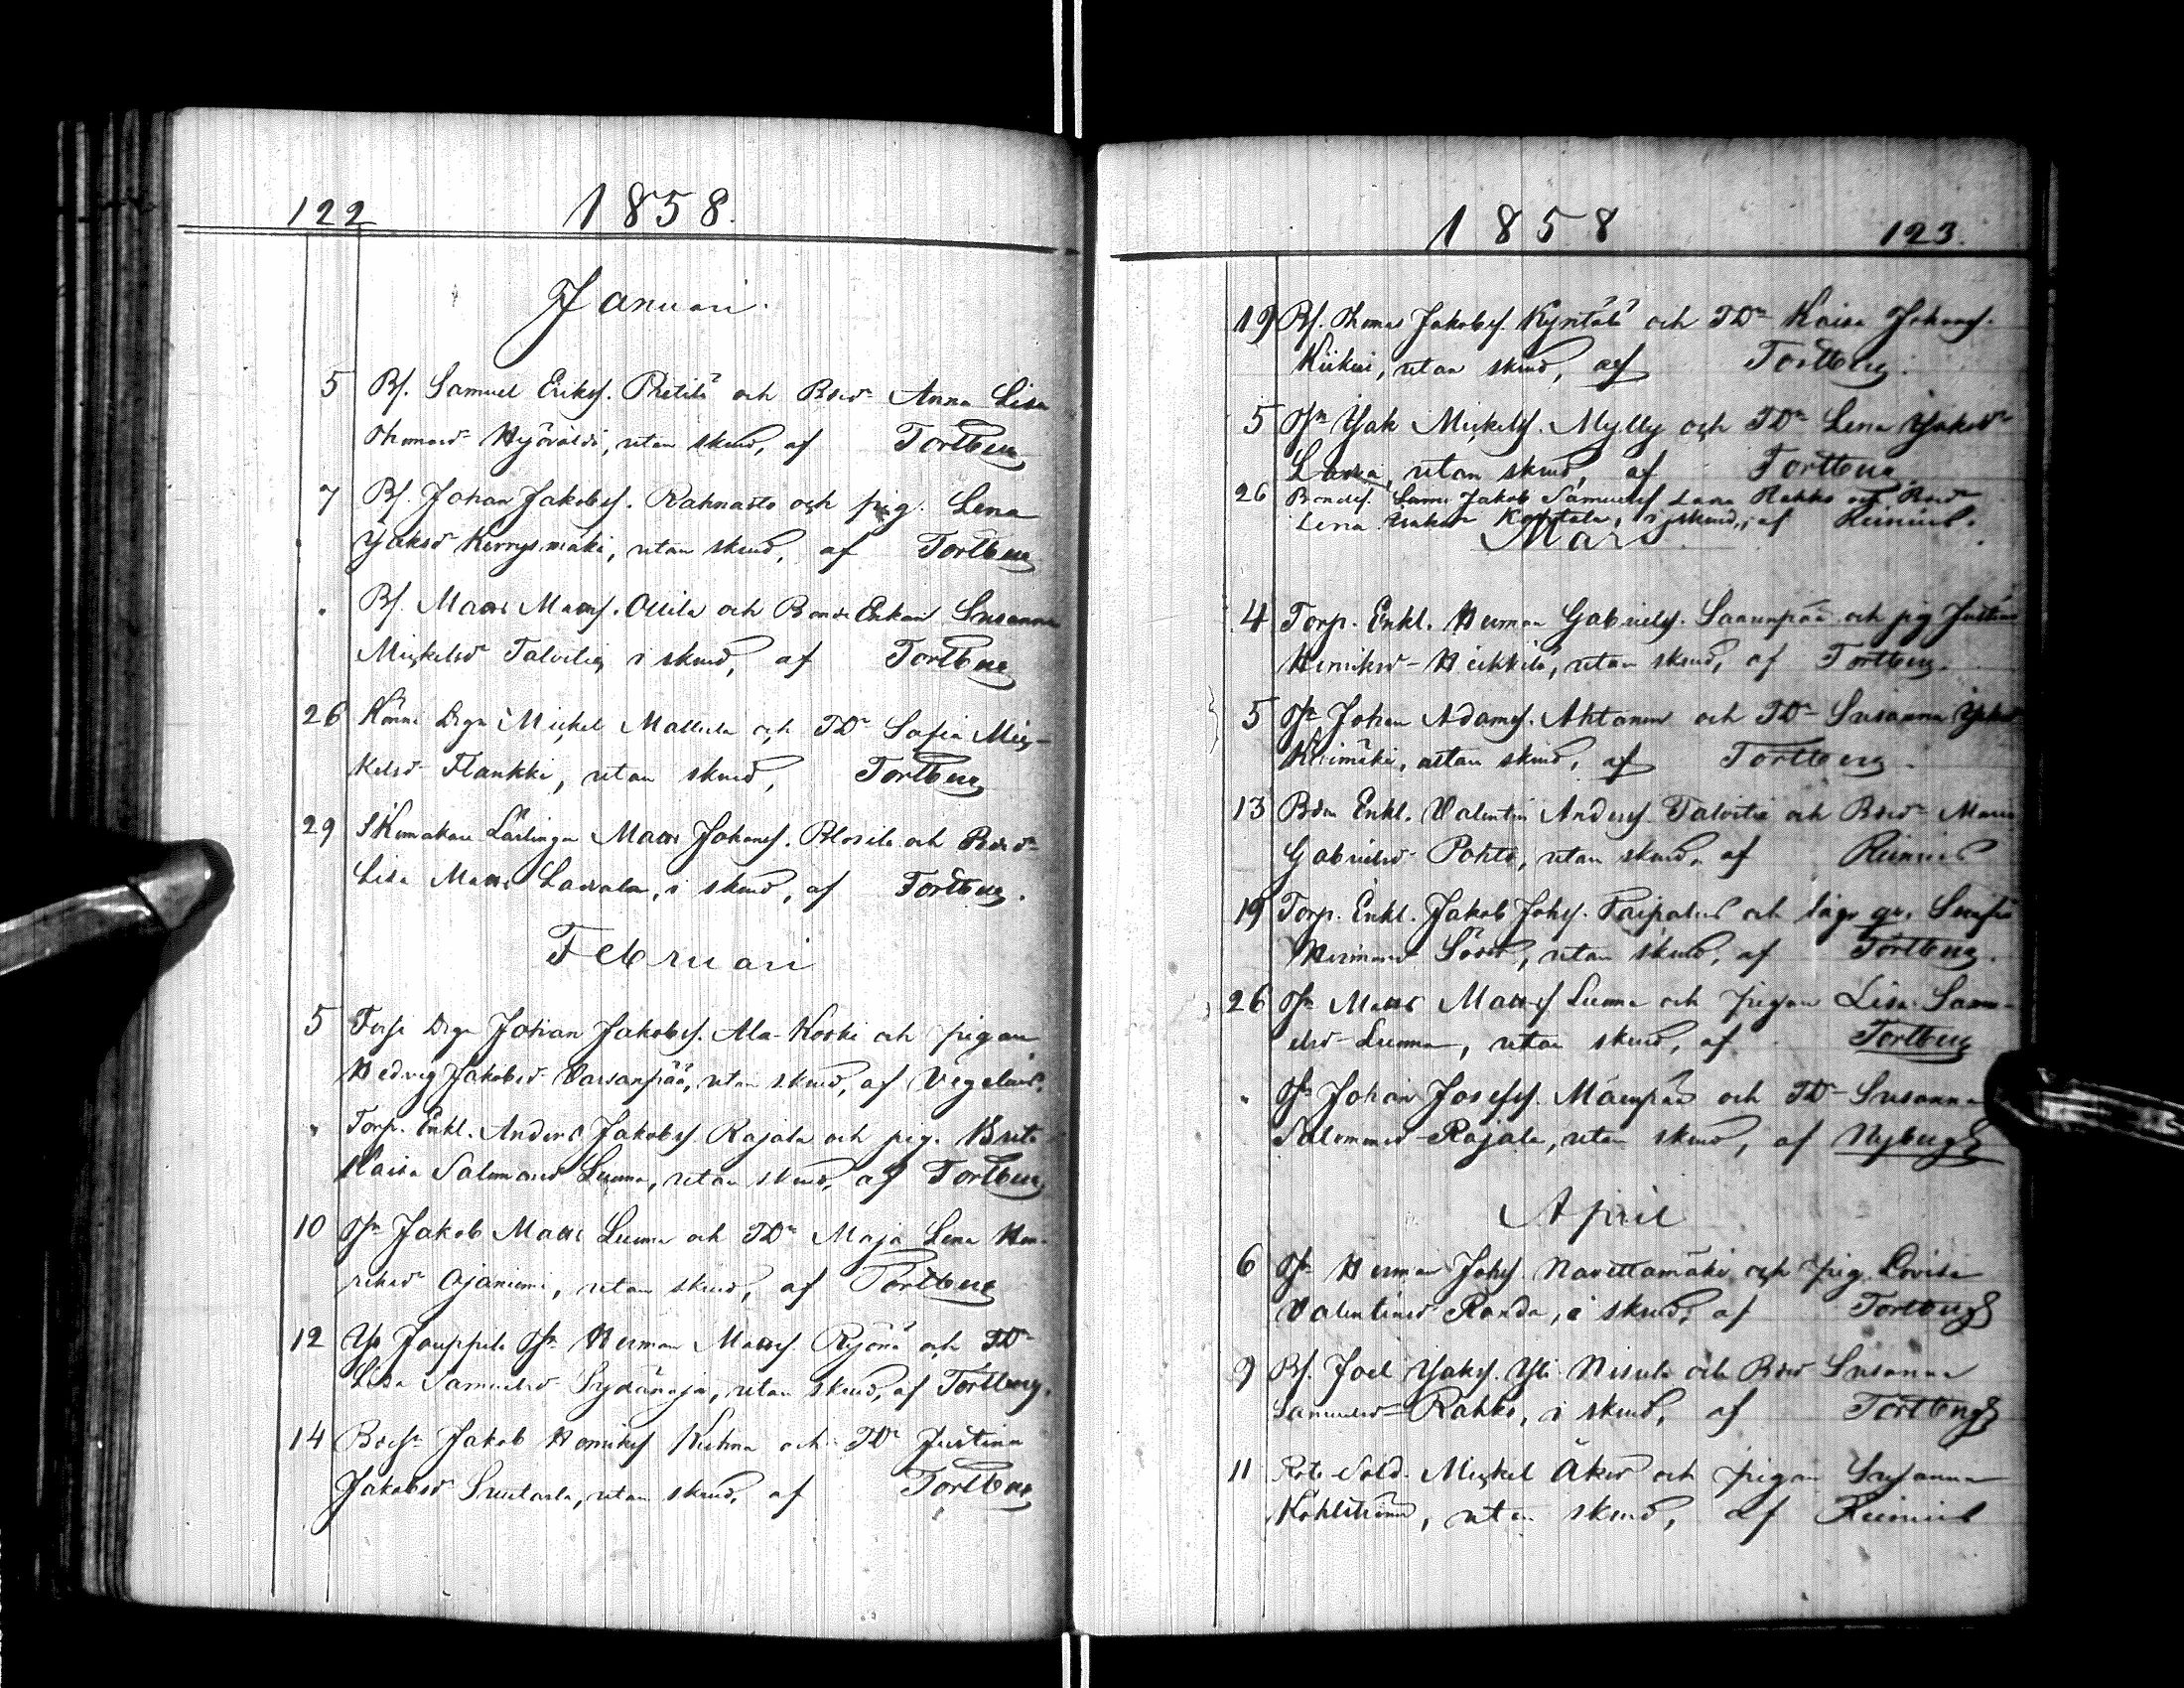 122 1858.
Januari.
5 Bs. Samuel Eriks. Pietilä och Bdr Anna Lisa
Thomasdr Hyövälti, utan skud, af Tortberg
7 Bs. Johan Jakobs. Rahnasto och pig. Lena
Isaksdr Kerrysmäki, utan skud, af Tortberg
" Bs. Matts Matts. Ollila och Bonde Enkan Susanna
Mickelsdr Talvitie, i skud, af Tortberg
26 Drgn Mickel Mattila och TDr Sofia Mic-
kelsdr Flankki, utan skud, Tortberg
29 Skomakare Lärlingen Matts Johans. Blosila och Bdr
Lisa Matts Lassala, i skud, af Tortberg.
Februari
5 Torp Drgn Johan Jakobs. Ala-Koski och pigan
Hedvig Jakobsdr Varsanpää, utan skud, af Vegelius.
" Torp. Enkl. Anders Jakobs. Rajala och pig. Brita
Kaisa Salomonsdr Luoma, utan skud, af Tortberg
10 TSn Jakob Matts Luoma och TDr Maja Lena Hen-
riksdr Ojaniemi, utan skud, af Tortberg
12 Yv Jouppila TSn Herman Matts. Röjönä och TDr
Lisa Samuelsdr Sydänoja, utan skud, af Tortberg.
14 Jakob Henriks Kuhna och TDr Justina
Jakobsdr Suutarla, utan skud, af Tortberg
1858 123.
19 Bs. Thomas Jakobs. Kyntölä och TDr Kaisa Johans.
Kiikeri, utan skud, af Tortberg.
5 TSn Isak Mickels. Mylly och TDr Lena Isaksdr
Laxia, utan skud, af Tortberg
26 Bondes. Jakob Samuels Lassa Rahko och Bdr
Lena Isaksdr Kojtala, i skud, af Reinius.
Mars
4 Torp. Enkl. Herman Gabriels. Saarenpää och pig Justina
Henriksdr Heikkilä, utan skud, af Tortberg.
5 TSn Johan Adams. Ahtonen och TDr Susanna
utan skud, af Tortberg.
13 Bdn Enkl. Valentin Anders Talvitie och Bdr Maria
Gabrielsdr Pohto, utan skud, af Reinius
19 Torp. Enkl. Jakob Johs. Paipalus och
Hermansdr utan skud, af Tortberg.
26 TSn Matts Matts Luoma och pigan Lisa Samu-
elsdr Luoma, utan skud, af Tortberg
" TSn Johan Josefs. Mäenpää och TDr Susanna
Salomonsdr Rajala, utan skud, af Nyberg
April
6 TSn Herman Johs. Navettamäki och pig. Lovisa
Valentinsdr Randa, i skud, af Tortberg
9 Bs. Joel Isaks. Yli Nisula och Bdr Susanna
Samuelsdr Rahko, i skud, af Tortberg
11 Rote Sold. Mickel Åker och pigan Susanna
Kohlström, utan skud, af Reinius